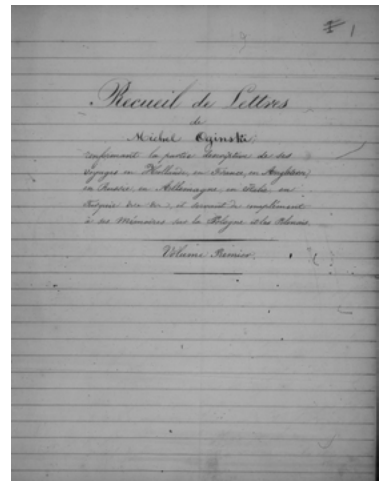 1
Recueil de Lettres
de
Michel Oginski
renfermant la partie descriptive de ses
voyages en Hollande, en France, en Angleterre,
en Russie en Allemagne, en Italie en
Turquie et servant de complément
à ses Mémoires sur la Pologne et les Polonais
Volume Premier